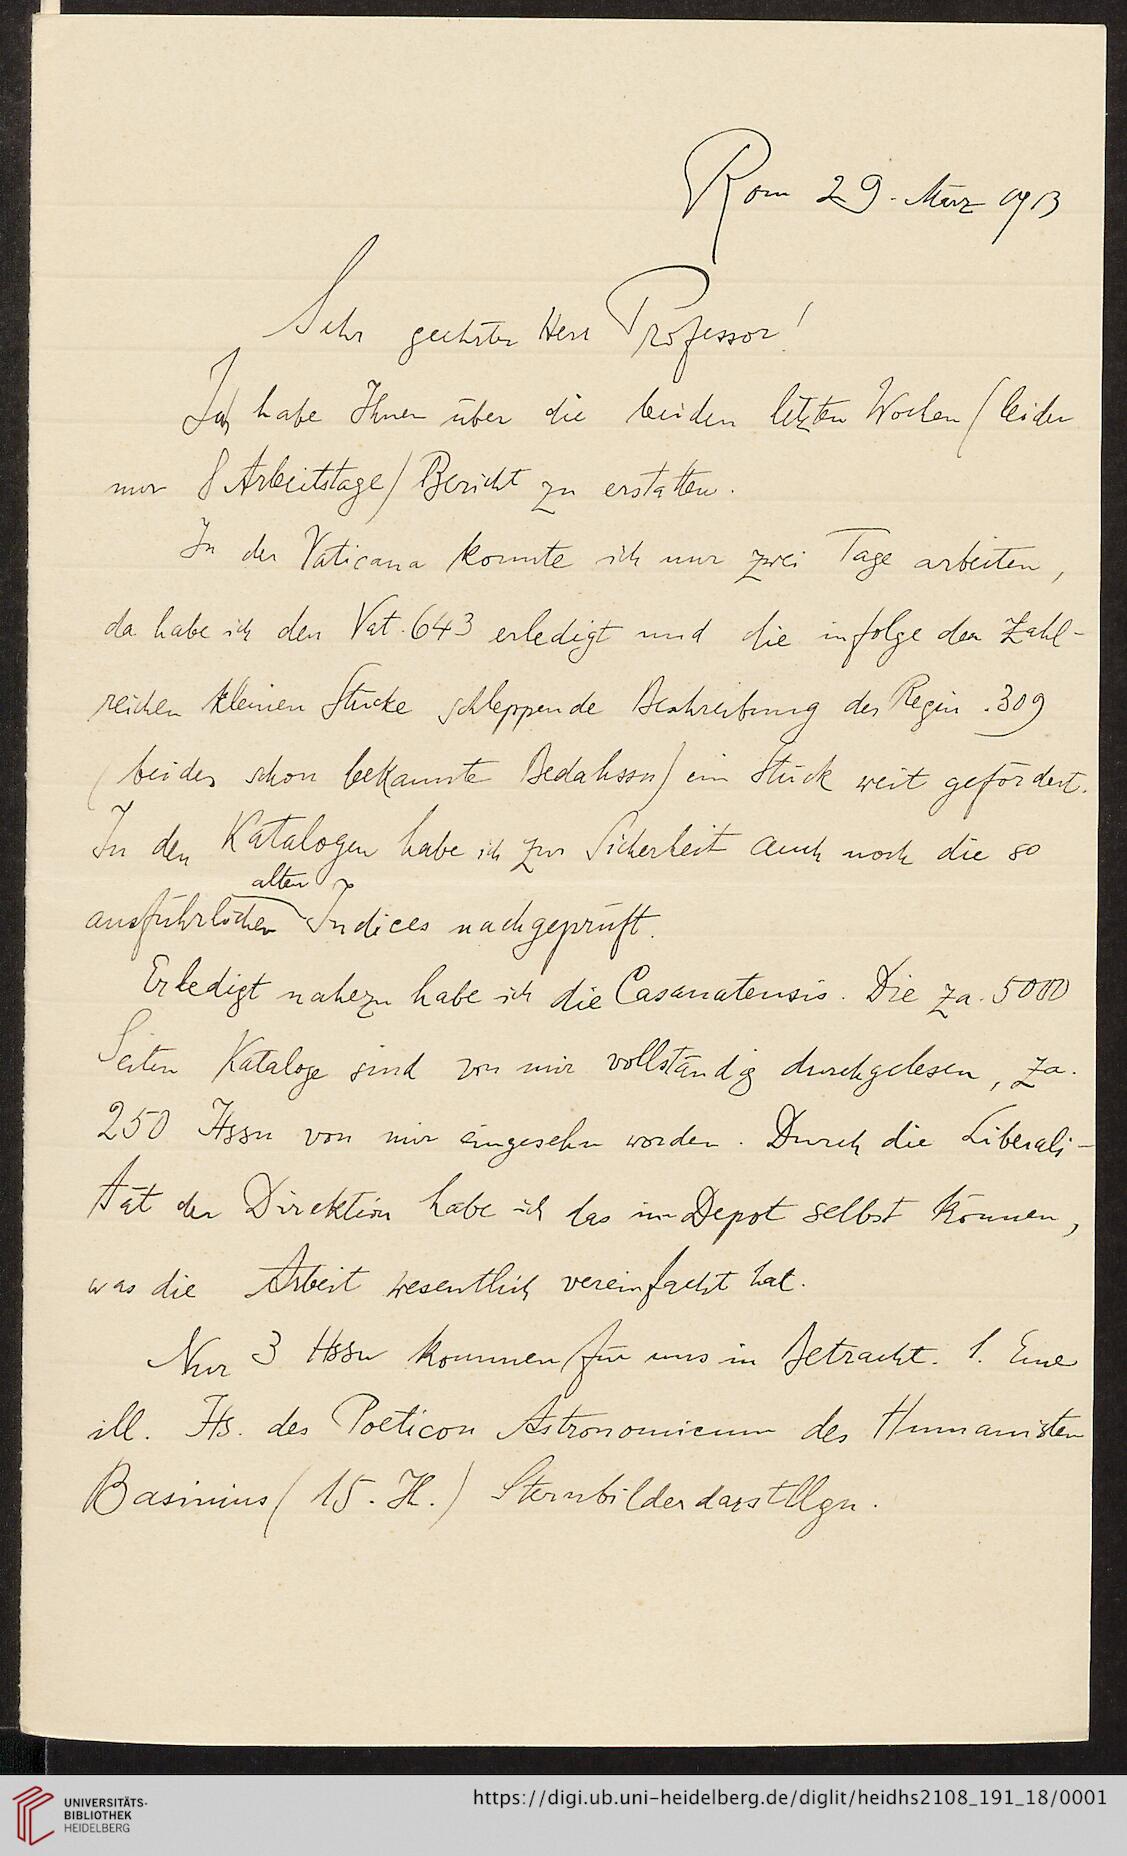 Rom 29. März 1913
Sehr geehrter Herr Professor!
Ich habe Ihnen über die beiden letzten Wochen (leider
nur 8 Arbeitstage) Bericht zu erstatten.
In der Vaticana konnte ich nur zwei Tage arbeiten,
da habe ich den Vat. 643 erledigt und die infolge der zahl-
reichen kleinen Stücke schleppende Beschreibung des Regin. 309
(beides schon bekannte Bedahssn) ein Stück weit gefördert.
In den Katalogen habe ich zur Sicherheit auch noch die so
alten
ausführlichen Indices nachgeprüft.
Erledigt nahezu habe ich die Casanatensis. Die za. 5000
Seiten Kataloge sind von mir vollständig durchgelesen, za.
250 Hssn von mir eingesehn worden. Durch die Liberali-
tät der Direktion habe ich das im Depot selbst können,
was die Arbeit wesentlich vereinfacht hat.
Nur 3 Hssn kommen für uns in Betracht. 1. Eine
ill. Hs. des Poeticon Astronomicum des Humanisten
Basinius (15. JH.) Sternbilderdarstllgn.
UNIVERSITÄTS-
BIBLIOTHEK
HEIDELBERG
https://digi.ub.uni-heidelberg.de/diglit/heidhs2108_191_18/0001